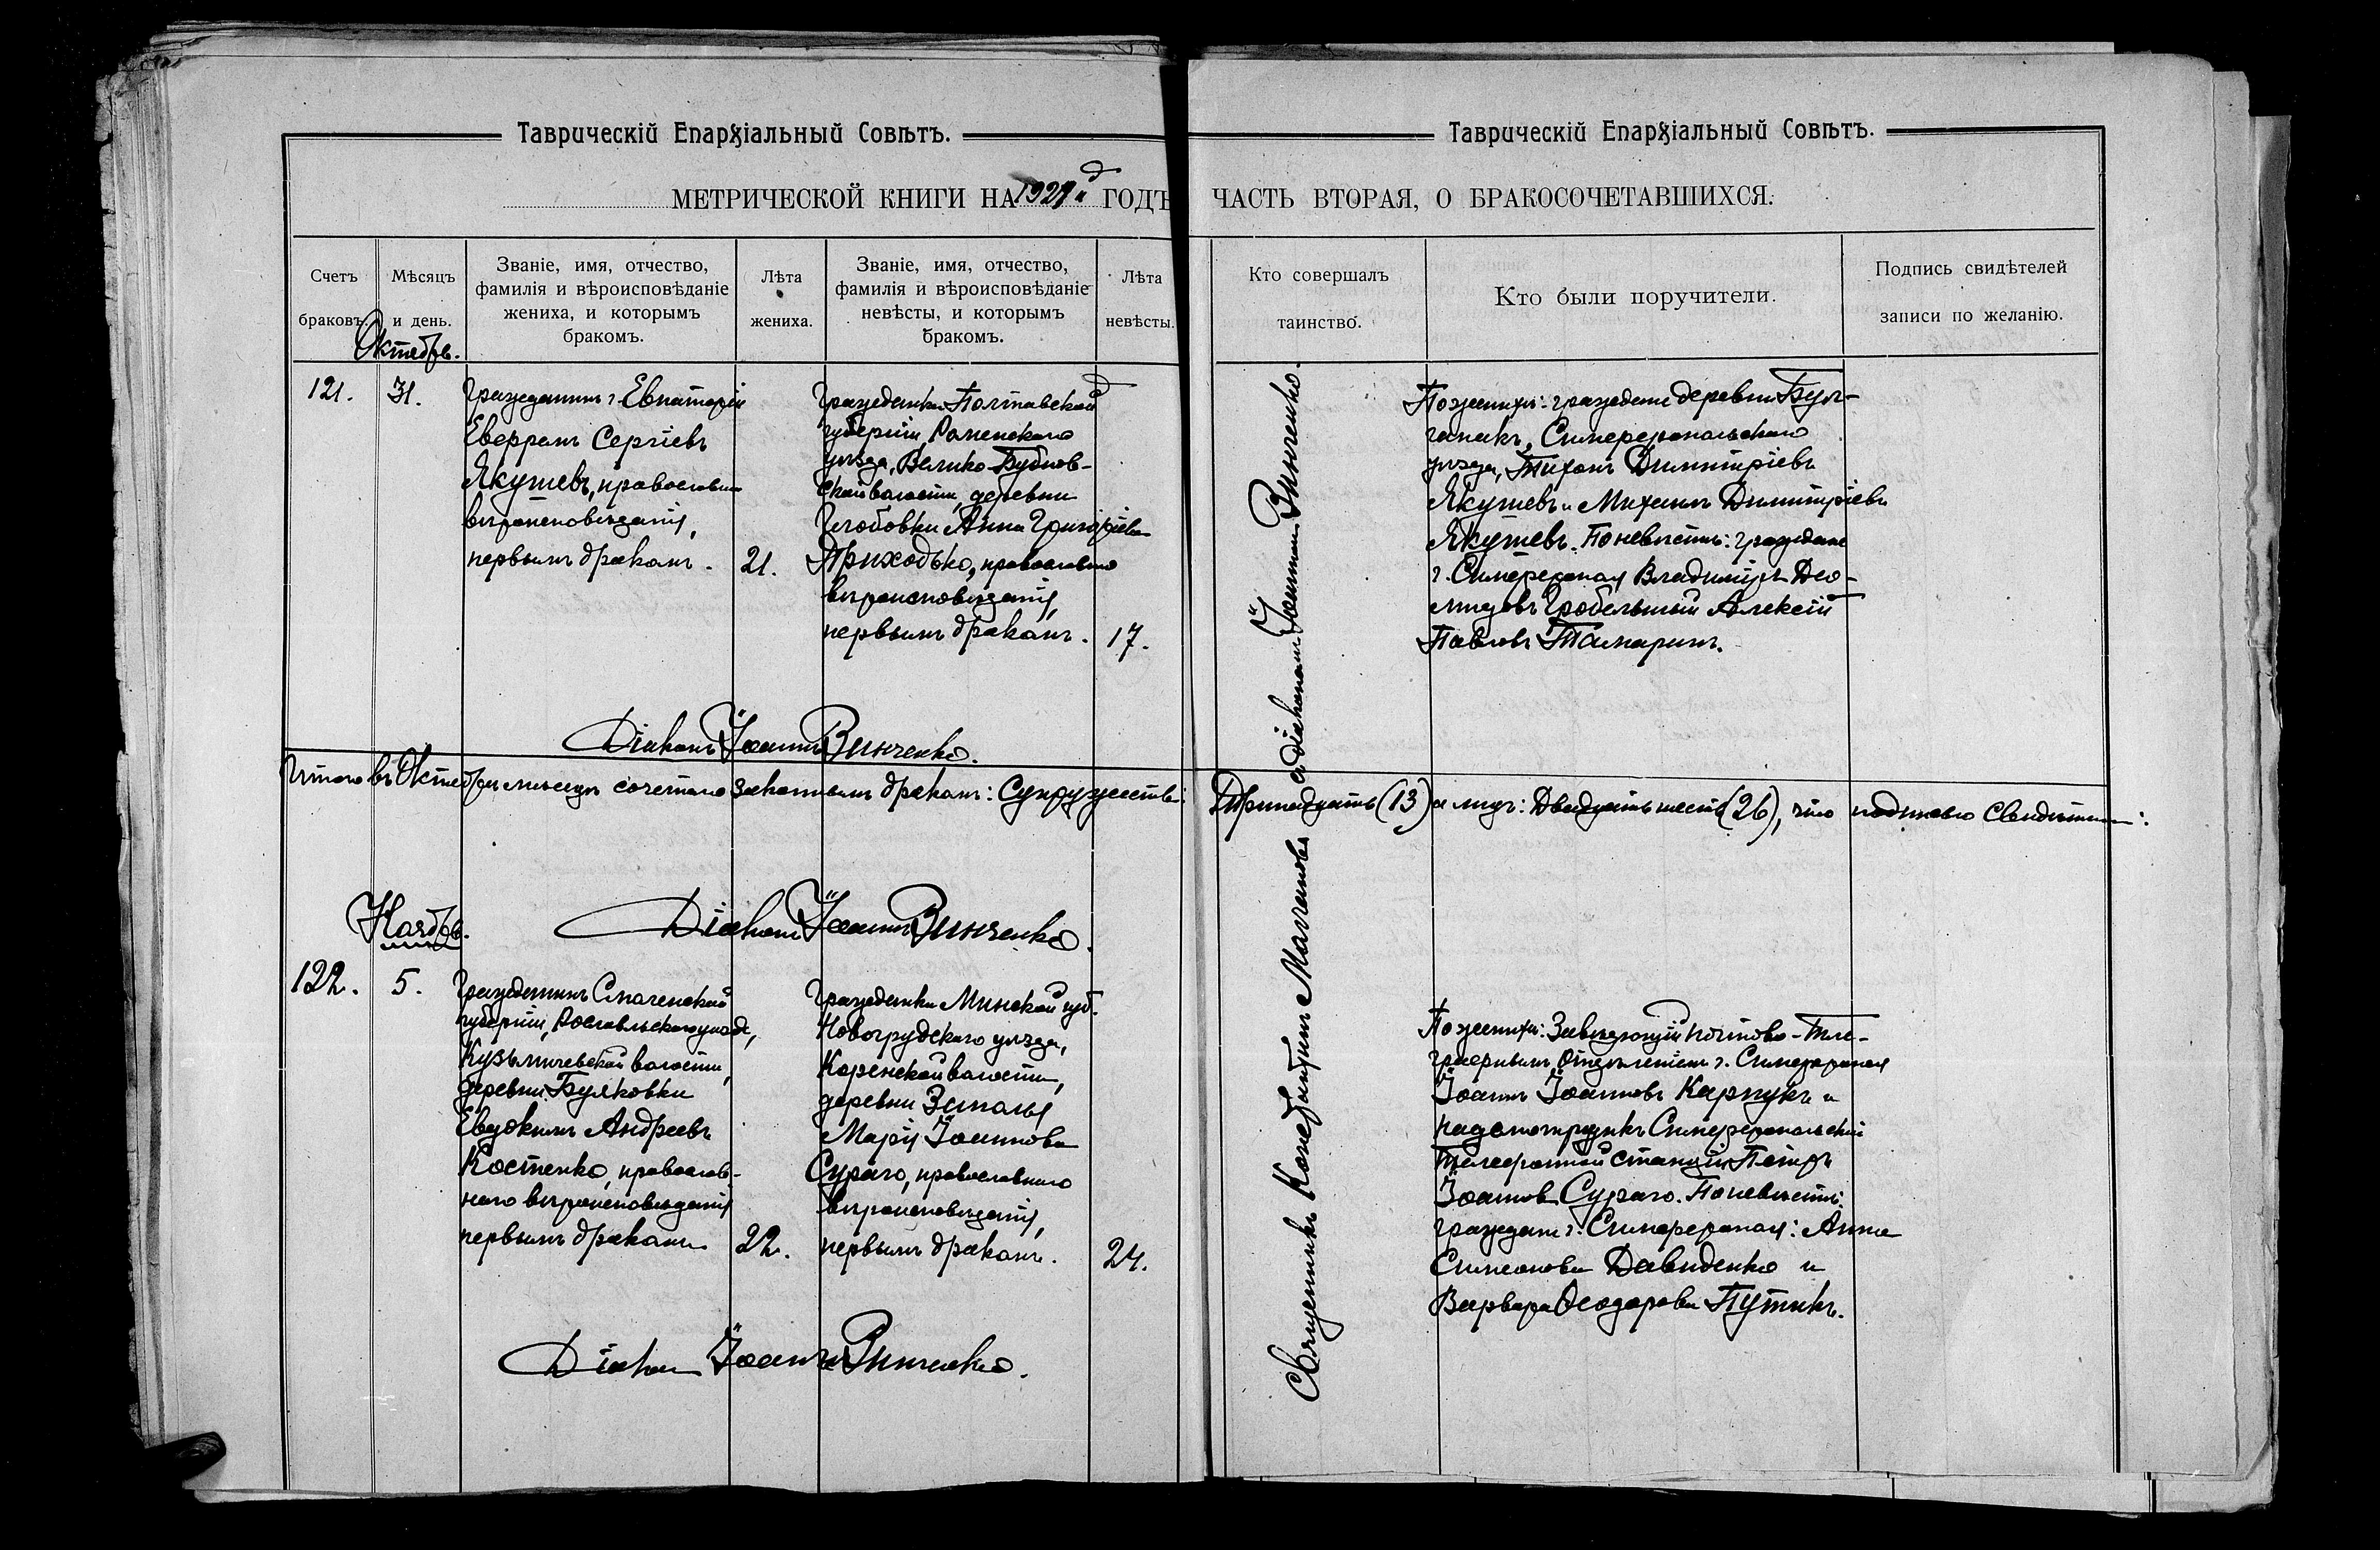 Таврическій Епархіальный Совѣтъ.
МЕТРИЧЕСКОЙ КНИГИ НА 1921й ГОДЪ
Счетъ браковъ.
Мѣсяцъ и день.
Званіе, имя, отчество,
фамилія и вѣроисповѣданіе
жениха, и которымъ
бракомъ.
Лѣта жениха.
Званіе, имя, отчество,
фамилія и вѣроисповѣданіе
невѣсты, и которымъ
бракомъ.
Лѣта невѣсты.
Октябрь.
121.
31.
Гражданинъ г. Евпаторіи
Сергіевъ
Якушевъ, православн
вѣроисповѣданія,
первымъ бракомъ.
21.
Гражданка Полтавской
губерніи, Роменскаго
уѣзда, Велико-Бубнов-
ской волости, деревни
Анна Григоріева
Приходько, православно
вѣроисповѣданія,
первымъ бракомъ.
17.
Діаконъ Іоаннъ Винченко.
Итого въ Октябрѣ мѣсяцѣ сочетано законнымъ бракомъ: Супружествъ:
Ноябрь.
Діаконъ Іоаннъ Винченко.
122.
5.
Гражданинъ Смоленской
губерніи, Рославльскаго уѣзда,
волости,
деревни
Евдокимъ Андреевъ
Костенко, православ-
наго вѣроисповѣданія
первымъ бракомъ
22.
Гражданка Минской губ.
Новогрудскаго уѣзда,
волости,
деревни
Марія Іоаннова
Сураго, православнаго
вѣроисповѣданія,
первымъ бракомъ.
24.
Діаконъ Іоаннъ Винченко.
Таврическій Епархіальный Совѣтъ.
ЧАСТЬ ВТОРАЯ, О БРАКОСОЧЕТАВШИХСЯ.
Кто совершалъ таинство.
Кто были поручители.
Подпись свидѣтелей записи по желанію.
Священникъ Константинъ съ діакономъ Іоанномъ Винченко.
По женихѣ: граждане деревни Бул-
ганакъ, Симферопольскаго
уѣзда, Тихонъ Димитріевъ
Якушевъ и Михаилъ Димитріевъ
Якушевъ. По невѣстѣ: граждане
г. Симферополя Владиміръ Део-
мидовъ Гробельный Алексій
Павловъ Тамаринъ.
Тринадцать (13) а лицъ: Двадцать шесть (26), что подписью свидѣтельст:
По женихѣ: Завѣдующій почтово-теле-
графнымъ отдѣленіемъ г. Симферополя
Іоаннъ Іоанновъ Карпукъ и
надсмотрщикъ Симферопольской
телефонной станціи Петръ
Іоанновъ Сураго. По невѣстѣ:
граждане г. Симферополя: Анна
Симеонова Давиденко и
Варвара Ѳеодорова Путикъ.